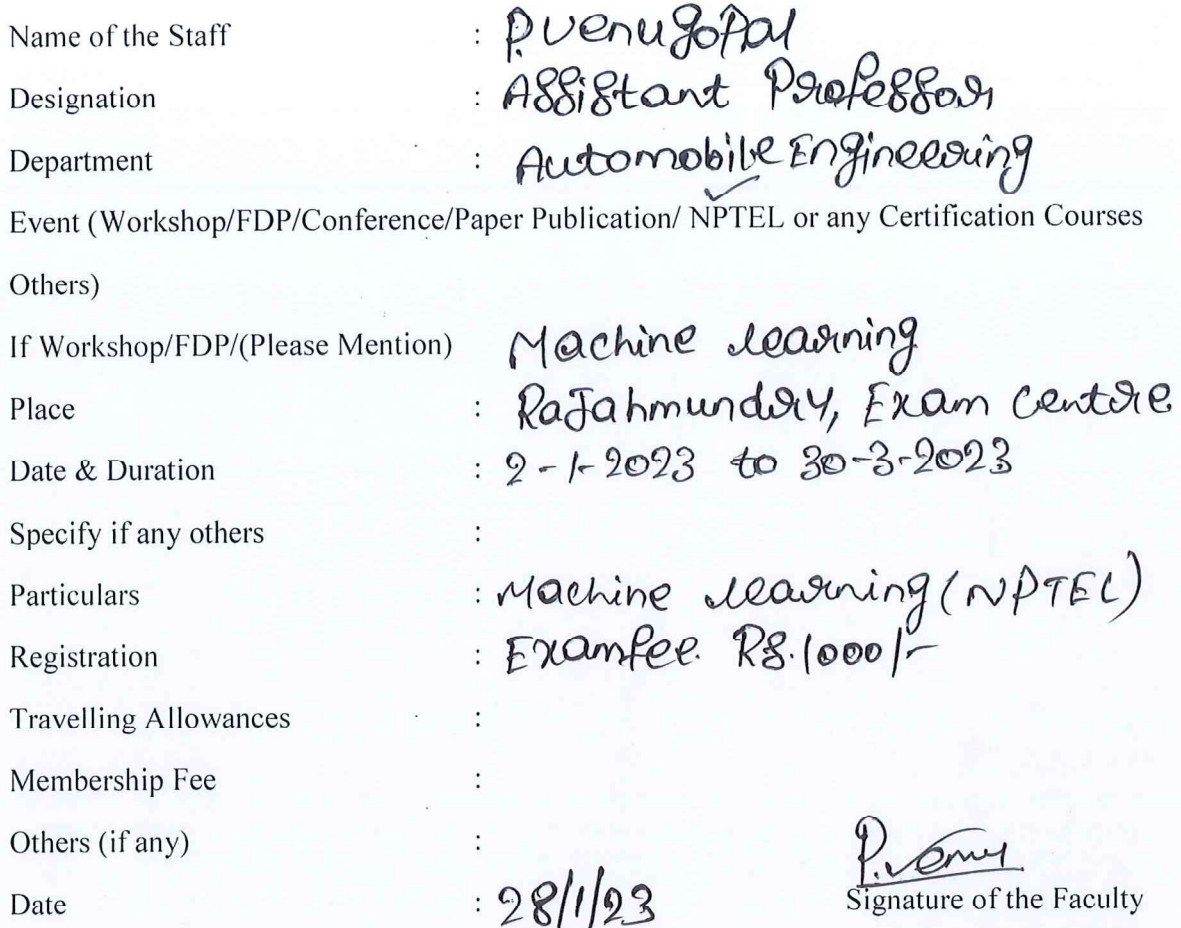 Name of the Staff : P.Venugopal
Designation : Assistant Professor
Department : Automobile Engineering
Event (Workshop/FDP/Conference/Paper Publication/ NPTEL or any Certification Courses
Others)
If Workshop/FDP/(Please Mention) Machine learning
Place : Rajahmundry, Exam Centre
Date & Duration : 2-1-2023 to 30-3-2023
Specify if any others :
Particulars : Machine learning (NPTEL)
Registration : Examfee. Rs.1000/-
Travelling Allowances :
Membership Fee :
Others (if any) :
P.Venu
Date : 28/1/23 Signature of the Faculty